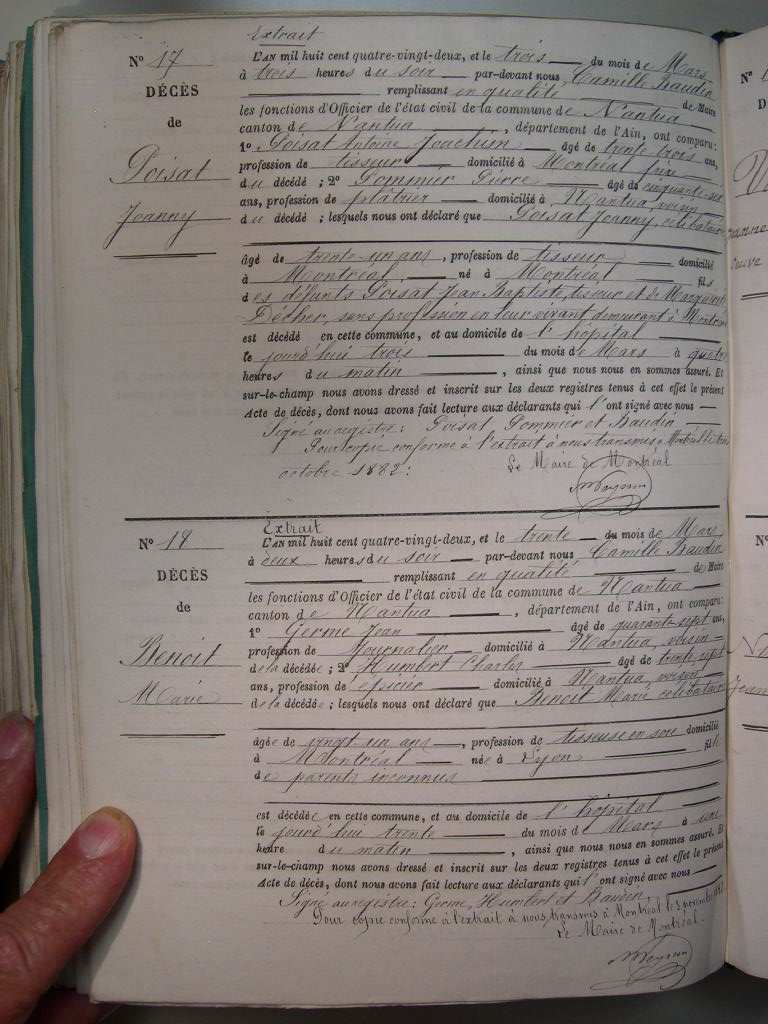 Extrait
N° 17
L'AN mil huit cent quatre-vingt-deux, et le trois du mois de Mars
à trois heures du soir par-devant nous Camille Baudin
DÉCÈS
remplissant en qualité de Maire
les fonctions d'Officier de l'état civil de la commune de Nantua
de
canton de Nantua, département de l'Ain, ont comparu:
1° Poisat Antoine Joachim âgé de trente trois ans,
Poisat
profession de tisseur domicilié à Montréal frère
du décédé ; 2° Pommier Pierre âgé de cinquante six
ans, profession de plâtrier domicilié à Nantua voisin
Joanny
du décédé ; lesquels nous ont déclaré que Poisat Joanny, célibataire
âgé de trente-un ans, profession de tisseur domicilié
à Montréal né à Montréal fils
des défunts Poisat Jean Baptiste, tisseur et de Marguerite
Décher, sans profession en leur vivant demeurant à Montréal
est décédé en cette commune, et au domicile de l'hôpital
le jourd'hui trois du mois de Mars à quatre
heures du matin, ainsi que nous nous en sommes assuré. Et
sur-le-champ nous avons dressé et inscrit sur les deux registres tenus à cet effet le présent
Acte de décès, dont nous avons fait lecture aux déclarants qui l'ont signé avec nous
Signé au registre: Poisat Pommier et Baudin
Pour copie conforme à l'extrait à nous transmis à Montréal le
octobre 1882:
Le Maire de Montréal
Extrait
N° 18
L'AN mil huit cent quatre-vingt-deux, et le trente du mois de Mars
à deux heures du soir par-devant nous Camille Baudin
DÉCÈS
remplissant en qualité de Maire
les fonctions d'Officier de l'état civil de la commune de Nantua
de
canton de Nantua, département de l'Ain, ont comparu:
1° Germe Jean âgé de quarante-sept ans,
Benoit
profession de Journalier domicilié à Nantua, voisin
de la décédée; 2° Humbert Charles âgé de trente sept
ans, profession de épicier domicilié à Nantua, voisin
Marie
de la décédée; lesquels nous ont déclaré que Benoit Marie célibataire
âgée de vingt un ans, profession de tisseuse en soie domicilié
à Montréal née à Lyon fille
de parents inconnus
est décédée en cette commune, et au domicile de l'hôpital
le jourd'hui trente du mois de Mars à une
heure du matin, ainsi que nous nous en sommes assuré. Et
sur-le-champ nous avons dressé et inscrit sur les deux registres tenus à cet effet le présent
Acte de décès, dont nous avons fait lecture aux déclarants qui l'ont signé avec nous
Signé au registre: Germe, Humbert et Baudin,
Pour copie conforme à l'extrait à nous transmis à Montréal le 3 novembre
Le Maire de Montréal.